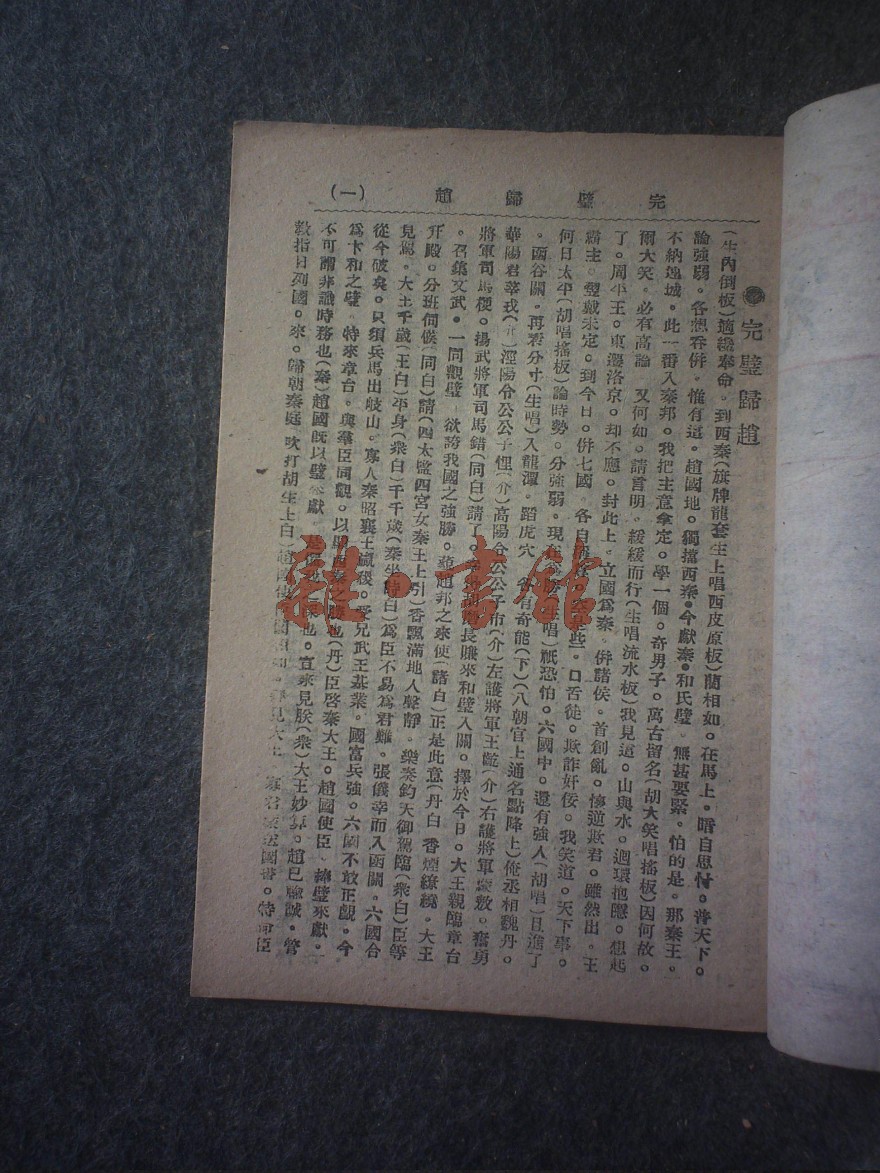 完璧歸趙 (一)
完璧歸趙
(生內倒板)適纔奉命。到西秦(旗牌龍套生上唱西皮原板)藺相如。在馬上。暗自思忖。普天下。
論強弱。各想吞併。惟有這。趙國地。獨擋西秦。今獻秦。和氏璧。無甚要緊。怕的是。那秦王。
不納連城。此一番入秦邦。我把主意拿定。學一個。奇男子。萬古留名(胡大笑唱搖板)因何故。
爾大笑。必有高論 又何如。請言明。緩緩而行(生唱流水板)我見這。山與水。迴環抱隱。想起
了。周平王。東遷洛京。却不應。封此上。立國為秦。併諸侯。首創亂。悖逆欺君。雖然出。五
霸主。擁戴未定。到今日。併七國 各自 口舌徒。欺詐奸佞。我笑道。天下事。
何日太平(胡唱搖板)論時勢。分強弱。現在 唱)祇恐怕。六國中。還有強人(胡唱)且進了
。函谷關。再看分寸(生唱)入龍潭。蹈虎穴 各有奇能(下)(八朝官上通名點降上)俺丞相魏丹。
華陽君芈戎(介)涇陽令公公子悝(介)高陽令公公子市(介)左護將軍王齕(介)右護將軍蒙驁。奮勇
將軍司馬梗。揚武將軍司馬錯(同白)請了。 長賺來和璧入關。擇於今日。大王親臨章台
。召集文武。一同觀璧 欲誇我國之強勝。恐趙邦之來使(諸白)正是此意(丹白 香煙繚繞。大王
升殿。分班伺候(同白)請(四太監四宮女秦王上引)香飄滿地人聲靜。樂奏鈞天御駕臨(衆白)臣等
見駕。大王千歲(王白)平身(衆白)千千歲(秦坐詩白)為臣不易為君難。張儀幸而入函關。六國合
從今破矣。只須兵馬出岐山。寡人秦昭襄王嬴稷。受兄武王基業。國富兵強。六國不敢正覷。今
為卞和之璧 特來章台。與羣臣同觀。以 也(丹)臣啓秦大王。趙國使臣、捧璧來獻。
不可謂非識時務也(秦)趙國既以璧來獻 是 也。宣來見朕(衆)大王妙算。趙已輸誠。管
教指日列國。來。歸朝秦庭 吹打胡生上白)趙 見大王 寡君 國書。特命臣
雜·書館